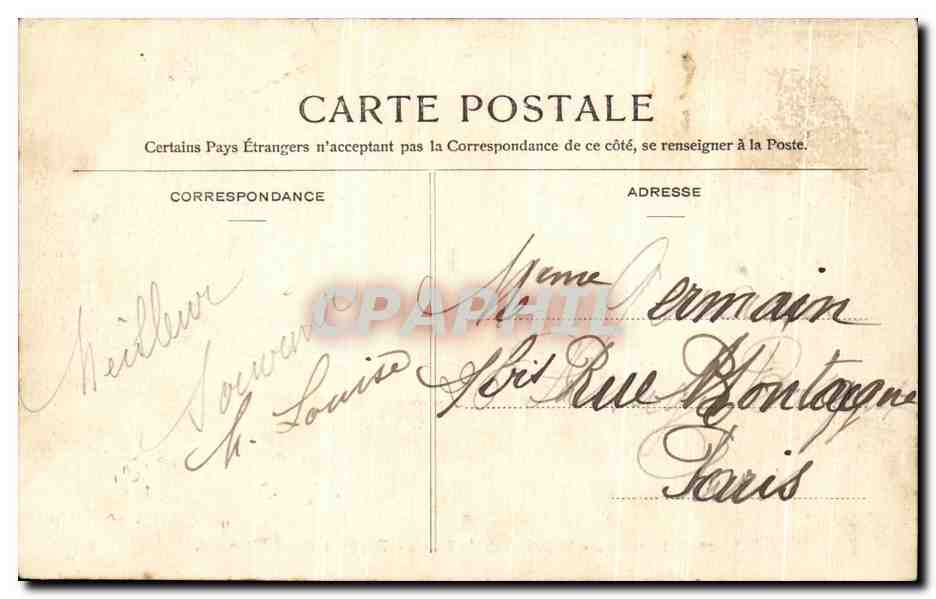 CARTE POSTALE
Certains Pays Étrangers n'acceptant pas la Correspondance de ce côté, se renseigner à la Poste.
CORRESPONDANCE
Meilleur
Souvenir
M. Louise
ADRESSE
Meme Germain
bis Rue Montaigne
Paris
CPAPHIL